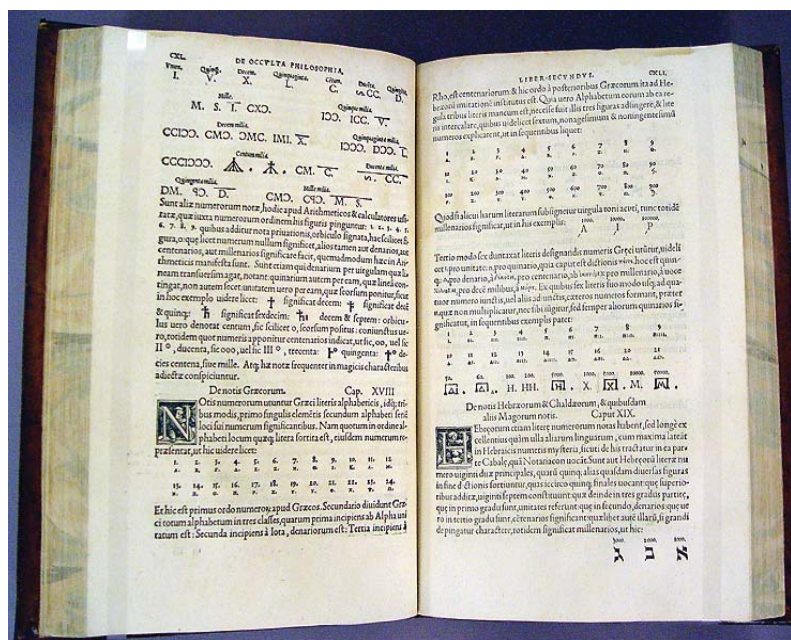 CXL. DE OCCVLTA PHILOSOPHIA,
Vnum. Quinq;. Decem. Quinquaginta. Centum. Ducēta. Quingēta.
I. V. X. L. C. CC. D.
Mille. Quinque milia.
M. S. I. CXƆ. IƆƆ. ICC. V.
Decem milia. Quinquaginta milia.
CCIƆƆ. CMƆ. ƆMC. IMI. X. IƆƆƆ. DƆƆ. L.
Centum milia. Ducenta milia.
CCCIƆƆƆ. CM. C. CC.
Quingenta milia. Mille milia.
DM. D. CMƆ. M. S.
Sunt aliæ numerorum notæ, hodie apud Arithmeticos & calculatores usi-
tatæ, quæ iuxta numerorum ordinem his figuris pinguntur: 1. 2. 3. 4. 5.
6. 7. 8. 9. quibus additur nota priuationis, orbiculo signata, hac scilicet fi-
gura, o quę licet numerum nullum significet, alios tamen aut denarios, aut
centenarios, aut millenarios significare facit, quemadmodum hæc in Ari-
thmeticis manifesta sunt. Sunt etiam qui denarium per uirgulam quæ li-
neam transuersim agat, notant: quinarium autem per eam, quæ lineā con-
tingat, non autem secet unitatem uero per eam, quæ seorsum ponitur, sicut
in hoc exemplo uidere licet: significat decem: significat decē
& quinq;: significat sexdecim: decem & septem: orbicu-
lus uero denotat centum, sic scilicet o, seorsum positus: coniunctus ue-
ro, totidem quot numeris apponitur centenarios indicat, ut sic, oo, uel sic
II °, ducenta, sic ooo, uel sic III °, trecenta: quingenta: de-
cies centena, siue mille. Atq; hæ notæ frequenter in magicis characteribus
adiectæ conspiciuntur.
De notis Græcorum. Cap. XVIII
NOtis numerorum utuntur Græci literis alphabeticis, idq; tri-
bus modis, primo singulis elemētis secundum alphabeti seriē
loci sui numerum significantibus. Nam quotum in ordine al-
phabeti locum quæq; litera sortita est, eiusdem numerum re-
præsentat, ut hic uidere licet:
1. 2. 3. 4. 5. 6. 7. 8. 9. 10. 11. 12
A. B. Γ. Δ. E. Z. H. Θ. I. K. Λ. M.
13. 14. 15. 16. 17. 18. 19. 20. 21. 22. 23. 24.
N. Ξ. O. Π. P. Σ. T. Y. Φ. X. Ψ. Ω.
Et hic est primus ordo numerorū apud Græcos. Secundario diuidunt Græ-
ci totum alphabetum in tres classes, quarum prima incipiens ab Alpha uni
tatum est: Secunda incipiens à Iota, denariorum est: Tertia incipiens à
LIBER SECVNDVS. CXLI.
Rho, est centenariorum & hic ordo à posterioribus Græcorum ita ad He-
bræorū imitationē institutus est. Quia uero Alphabetum eorum ab ea re-
gula tribus literis mancum est, necesse fuit illis tres figuras adfingere, & lite
ris intercalare, quibus uidelicet sextum, nonagesimum & noningentesimū
numeros explicarent, ut in sequentibus liquet:
1 2 3 4 5 6 7 8 9
10 20 30 40 50 60 70 80 90
100 200 300 400 500 600 700 800 900
Quod si alicui harum literarum subsignetur uirgula toni acuti, tunc totidē
millenarios significat, ut in his exemplis:
1000. 10000. 100000.
A I P
Tertio modo sex duntaxat literis designandis numeris Gręci utūtur, uideli
cet pro unitate: pro quinario, quia caput est dictionis hoc est quin-
que: pro denario, à pro centenario, ab pro millenario, à uoce
pro decē milibus, à Ex quibus sex literis suo modo usq; ad qua-
tuor numero iunctis, uel aliis ad iunctis, cæteros numeros formant, præter
quæ non multiplicatur, nec sibi iūgitur, sed semper aliorum quinarios si-
gnificat, ut in sequentibus exemplis patet:
1 2 3 4 5 6 7 8 9
10 11 12 13 14 15 16 20 21
50. 60. 100. 200. 500. 1000. 5000. 10000. 50000.
H. HH. X. M.
De notis Hebræorum & Chaldæorum, & quibusdam
aliis Magorum notis. Caput XIX.
HEbræorum etiam literę numerorum notas habent, sed longè ex
cellentius quàm ulla aliarum linguarum, cum maxima lateāt
in Hebraicis numeris mysteria, sicuti de his tractatur in ea par
te Cabalę, quā Notariacon uocāt. Sunt aut Hebreorū literæ nu
mero uiginti duæ principales, quarū quinq; alias quasdam diuersas figuras
in fine dictionis sortiuntur, quas iccirco quinq; finales uocant: quę superio-
ribus addictæ, uiginti septem constituunt: quæ deinde in tres gradus partitę,
quę in primo gradu sunt, unitates referunt: quę in secundo, denarios: quę ue
ro in tertio gradu sunt, cētenarios significant: quælibet autē illarū, si grandi
depingatur charactere, totidem significat millenarios, ut hic:
3000. 2000. 1000.
ג ב א